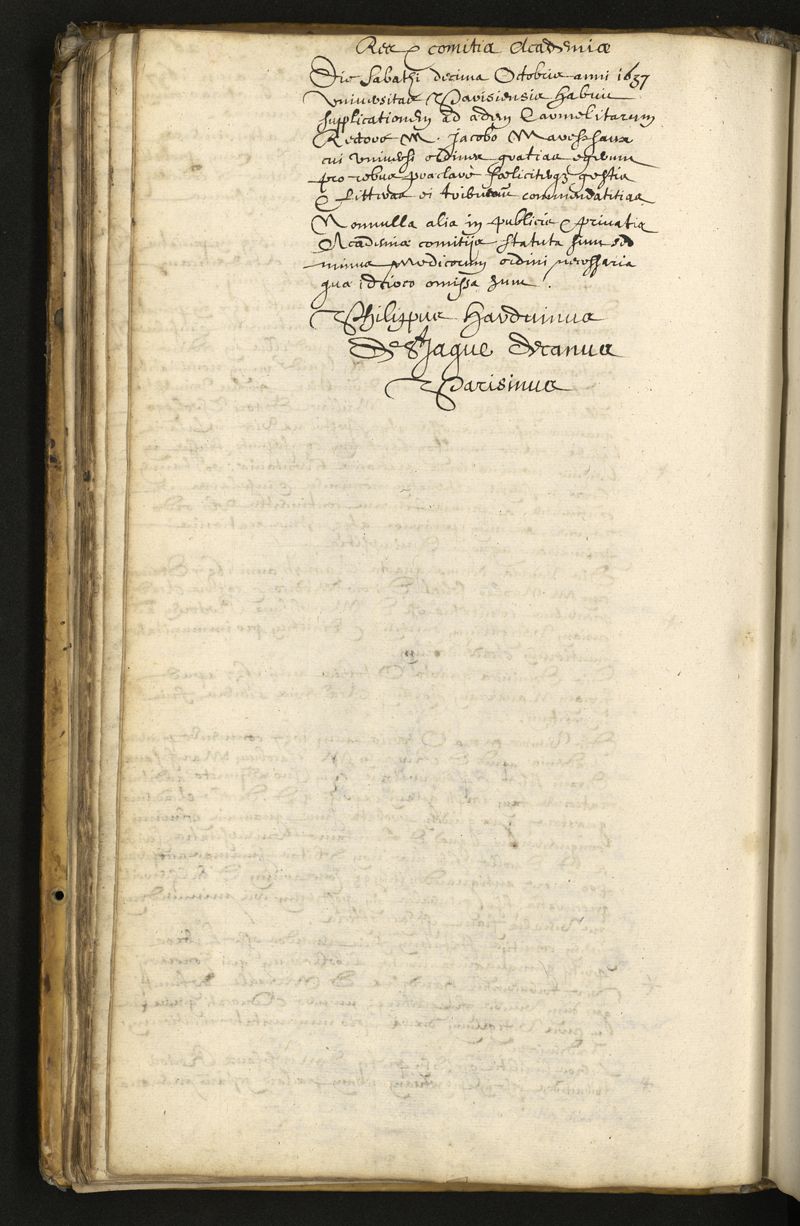 Res & comitia Academiæ
Die Sabathi decima Octobris anni 1637
Universitas Parisiensis habuit
supplicationem ad ædem Carmelitarum
Rectore M. Jacobo Maressaux
cui universi ordines gratias egerunt
pro rebus præclare feliciterq; gestis
& litteras ei tribuerunt commendatitias
Nonnulla alia in publicis & privatis
Academiæ comitijs statuta sunt sed
minus medicorum ordini necessaria
quæ idcirco omissa sunt.
Philippus Harduinus
De St Jaques decanus
Parisinus